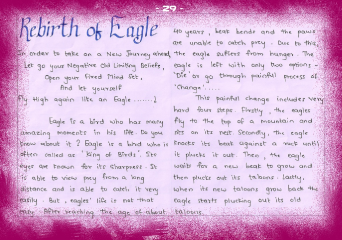 - 29 -
Rebirth of Eagle
In order to take on a New Journey ahead,
Let go your Negative Old Limiting Beliefs,
Open your Fixed Mind Set,
And let yourself
Fly High again like an Eagle .......!
Eagle is a bird who has many
amazing moments in his life. Do you
know about it ? Eagle is a bird who is
often called as 'King of Birds'. Its
eyes are known for its sharpness. It
is able to view prey from a long
distance and is able to catch it very
easily. But, eagles' life is not that
easy. After reaching the age of about
40 years, beak bends and the paws
are unable to catch prey. Due to this,
the eagle suffers from hunger. The
eagle is left with only two options -
'Die' or go through painful process of
'Change'.
This painful change includes very
hard four steps. Firstly, the eagles
fly to the top of a mountain and
sits on its nest. Secondly, the eagle
knocks its beak against a rock until
it plucks it out. Then, the eagle
waits for a new beak to grow and
then plucks out its talons. Lastly,
when its new talons grow back the
eagle starts plucking out its old
talons.